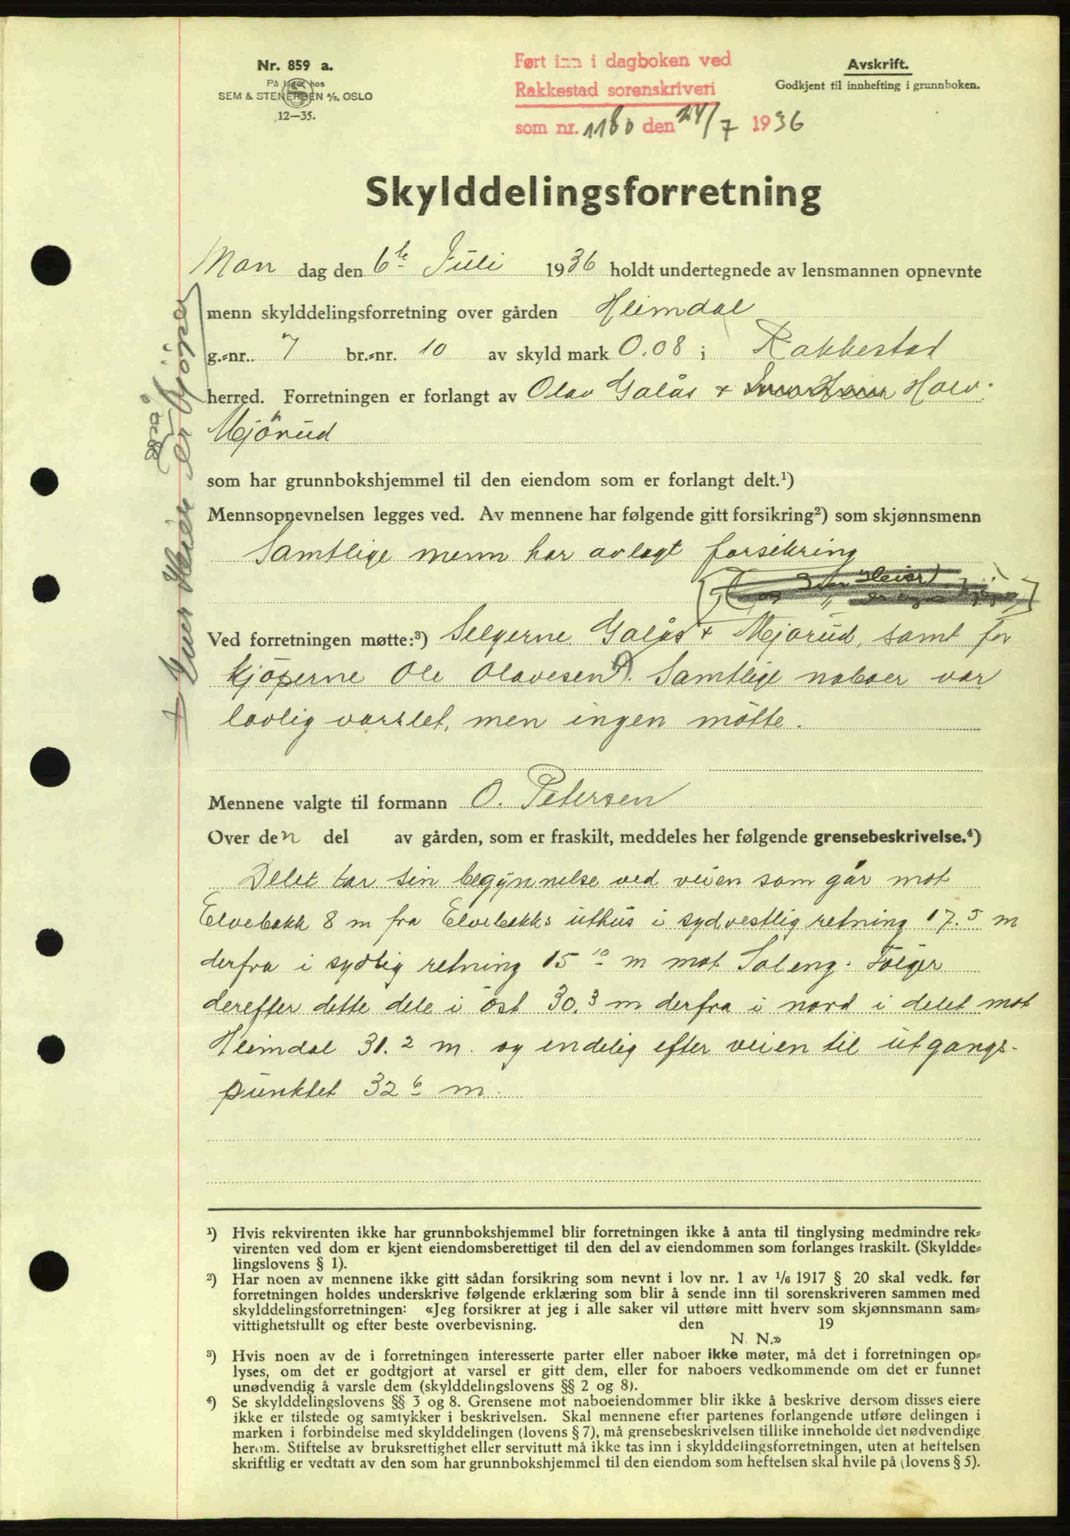 Nr. 859 a.
På lager hos
SEM & STENERSEN A/S, OSLO
12—35.
Ført inn i dagboken ved
Rakkestad sorenskriveri
som nr. 1180 den 24/7 1936
Avskrift.
Godkjent til innhefting i grunnboken.
Skylddelingsforretning
Man dag den 6te Juli 1936 holdt undertegnede av lensmannen opnevnte
menn skylddelingsforretning over gården Heimdal
g.-nr. 7 br.-nr. 10 av skyld mark 0.08 i Rakkestad
herred. Forretningen er forlangt av Olav Galås + Halv.
Mjörud
som har grunnbokshjemmel til den eiendom som er forlangt delt.¹)
Mennsopnevnelsen legges ved. Av mennene har følgende gitt forsikring²) som skjønnsmenn
Samtlige menn har avlagt forsikring
Ved forretningen møtte:³) Selgerne Galås + Mjørud, samt for
kjöperne Ole Olavesen. Samtlige naboer var
lovlig varslet, men ingen mötte.
+ Iver Heier er også kjöper
Mennene valgte til formann O. Petersen
Over den del av gården, som er fraskilt, meddeles her følgende grensebeskrivelse.⁴)
Delet tar sin begynnelse ved veien som går mot
Elvebakk 8 m fra Elvebakks uthus i sydvestlig retning 17.5 m
derfra i sydlig retning 15 10 m mot Soleng. Fölger
derefter dette dele i öst 30.3 m derfra i nord i delet mot
Heimdal 31.2 m. og endelig efter veien til utgangs-
punktet 32 6 m.
¹) Hvis rekvirenten ikke har grunnbokshjemmel blir forretningen ikke å anta til tinglysing medmindre rek-
virenten ved dom er kjent eiendomsberettiget til den del av eiendommen som forlanges fraskilt. (Skyldde-
lingslovens § 1).
²) Har noen av mennene ikke gitt sådan forsikring som nevnt i lov nr. 1 av 1/6 1917 § 20 skal vedk. før
forretningen holdes underskrive følgende erklæring som blir å sende inn til sorenskriveren sammen med
skylddelingsforretningen: «Jeg forsikrer at jeg i alle saker vil utføre mitt hverv som skjønnsmann sam-
vittighetsfullt og efter beste overbevisning. den 19
N. N.»
³) Hvis noen av de i forretningen interesserte parter eller naboer ikke møter, må det i forretningen op-
lyses, om det er godtgjort at varsel er gitt dem, eller for naboers vedkommende om det er funnet
unødvendig å varsle dem (skylddelingslovens §§ 2 og 8).
⁴) Se skylddelingslovens §§ 3 og 8. Grensene mot naboeiendommer blir ikke å beskrive dersom disses eiere
ikke er tilstede og samtykker i beskrivelsen. Skal mennene efter partenes forlangende utføre delingen i
marken i forbindelse med skylddelingen (lovens § 7), må grensebeskrivelsen tillike inneholde det nødvendige
herom. Stiftelse av bruksrettighet eller servitutt må ikke tas inn i skylddelingsforretningen, uten at heftelsen
skriftlig er vedtatt av den som har grunnbokshjemmel til den eiendom som heftelsen skal hvile på (lovens § 5).